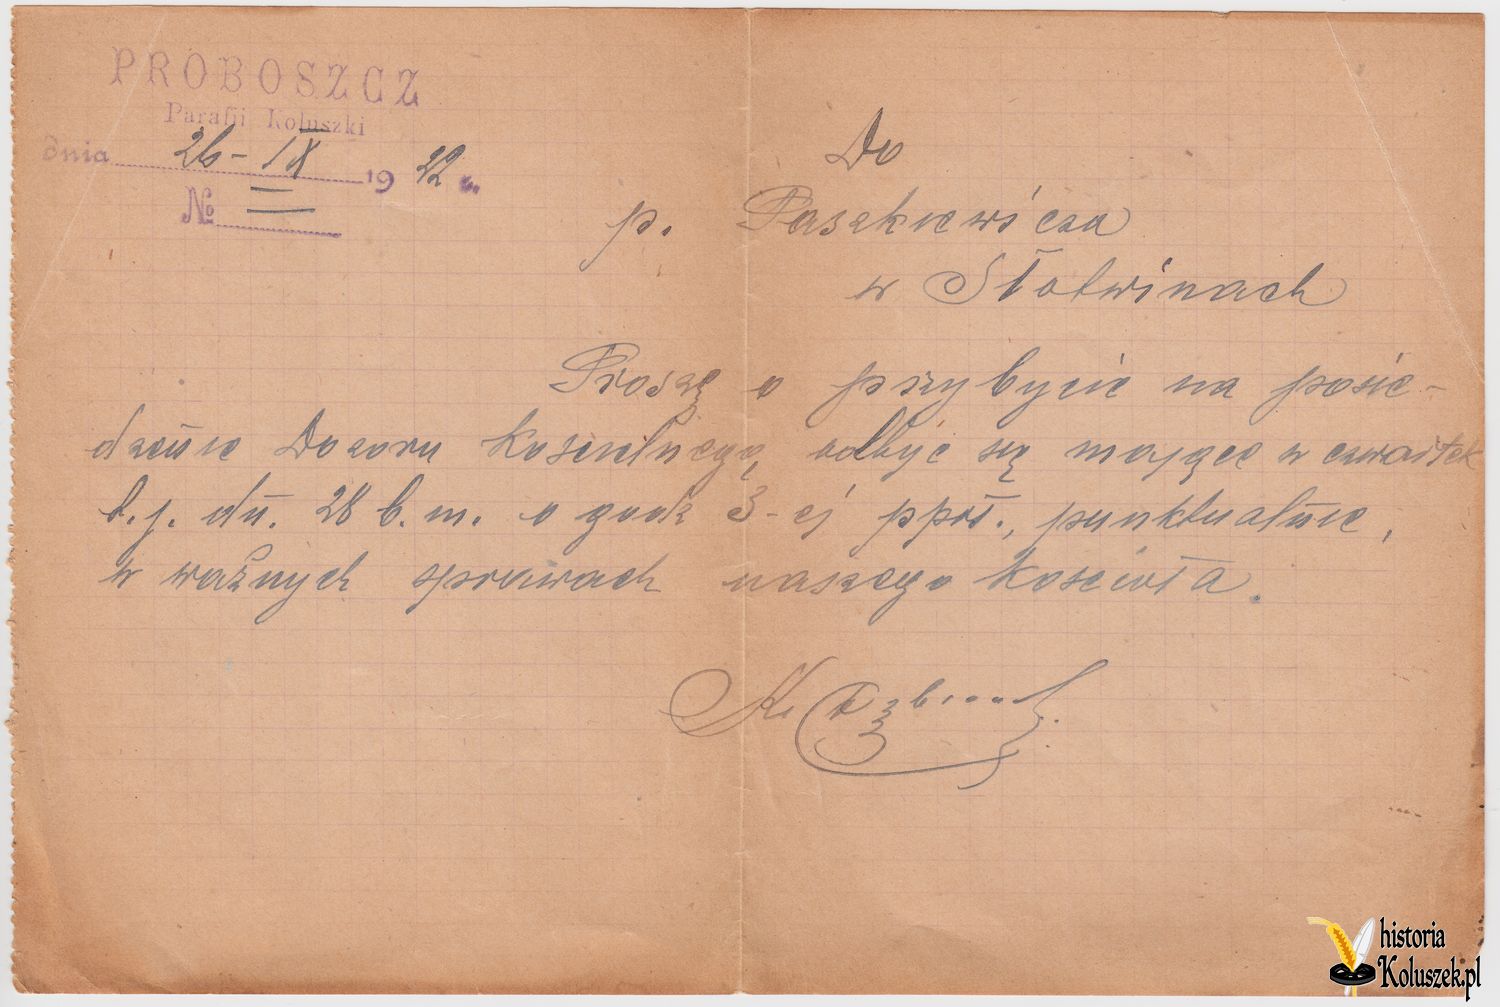 PROBOSZCZ
Parafii Koluszki
dnia 26-IX 1922 r.
№ =
Do
p. Paszkiewicza
w Słotwinach
Proszę o przybycie na posie-
dzenie Dozoru Kościelnego, odbyć się mające w czwartek
t.j. dn. 28 b.m. o godz 3-ej ppoł., punktualnie,
w ważnych sprawach naszego Kościoła.
historia
Koluszek.pl